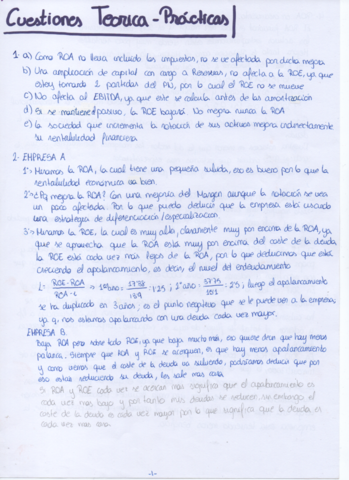 Cuestiones Teorica-Prácticas
1. a) Como ROA no lleva incluido los impuestos, no se ve afectada por dicha mejora
b) Una ampliación de capital con cargo a Reservas, no afecta a la ROE, ya que
estoy tomando 2 partidas del PN, por lo cual el ROE no se mueve
c) No afecta al EBITDA, ya que este se calcula antes de las amortización
d) Si se mantiene el pasivo, la ROE bajará. No mejora nunca la ROA
e) La sociedad que incrementa la rotación de sus activos mejora indirectamente
su rentabilidad financiera
2. EMPRESA A
1º Miramos la ROA, la cual tiene una pequeña subida, eso es bueno por lo que la
rentabilidad económica va bien.
2º ¿Pq mejora la ROA? Con una mejoría del Margen aunque la rotación se vea
un poco afectada. Por lo que puedo deducir que la empresa está usando
una estrategia de diferenciación/especialización.
3º Miramos la ROE, la cual es muy alto, claramente muy por encima de la ROA, ya
que se aprovecha que la ROA está muy por encima del coste de la deuda,
la ROE está cada vez más lejos de la ROA, por lo que deducimos que está
creciendo el apalancamiento, es decir, el nivel del endeudamiento
L: ROE-ROA / ROA-i
se ha duplicado en 3 años, es el punto negativo que se le puede ver a la empresa,
nos estamos apalancando con una deuda cada vez mayor.
EMPRESA B
Baja ROA pero sobre todo ROE, ya que baja mucho más, eso quiere decir que hay menos
palanca, siempre que ROA y ROE se acerquen, es que hay menos apalancamiento
y como vemos que el coste de la deuda va subiendo, podríamos deducir que por
eso está reduciendo su deuda, les sale más cara.
Si ROA y ROE cada vez se acercan más significa que el apalancamiento es
cada vez más bajo y por tanto sus deudas se reducen, sin embargo el
coste de la deuda es cada vez mayor por lo que significa que la deuda es
cada vez más cara.
-1-